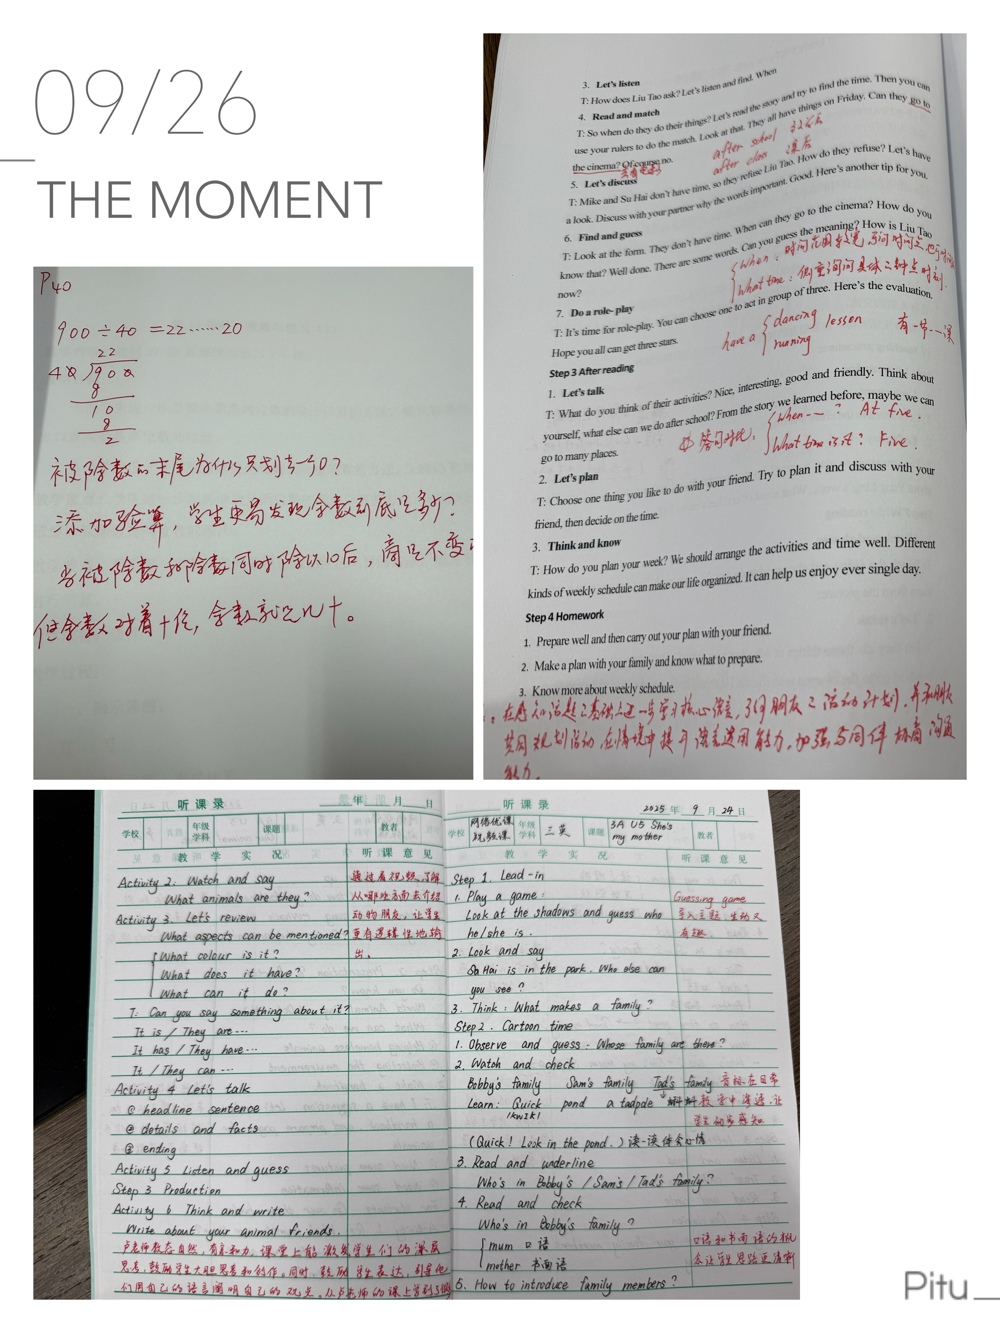 09/26
THE MOMENT
P40
900÷40=22……20
22
40)900
8
10
8
2
被除数的末尾为什么只划去一个0？
添加验算，学生更易发现余数到底是多少？
当被除数和除数同时除以10后，商是不变
但余数对着十位，余数就是几十。
3. Let's listen
T: How does Liu Tao ask? Let's listen and find. When
4. Read and match
T: So when do they do their things? Let's read the story and try to find the time. Then you can
use your rulers to do the match. Look at that. They all have things on Friday. Can they go to
the cinema? Of course no.
去看电影
after school 放学后
after class 课后
5. Let's discuss
T: Mike and Su Hai don't have time, so they refuse Liu Tao. How do they refuse? Let's have
a look. Discuss with your partner why the words important. Good. Here's another tip for you.
6. Find and guess
T: Look at the form. They don't have time. When can they go to the cinema? How do you
know that? Well done. There are some words. Can you guess the meaning? How is Liu Tao
now?
When: 时间范围较宽
What time: 侧重询问具体的钟点时刻.
7. Do a role- play
T: It's time for role-play. You can choose one to act in group of three. Here's the evaluation.
Hope you all can get three stars.
have a dancing lesson 有一节…课
running
Step 3 After reading
1. Let's talk
T: What do you think of their activities? Nice, interesting, good and friendly. Think about
yourself, what else can we do after school? From the story we learned before, maybe we can
go to many places.
答句对比, When...? At five.
What time is it? Five
2. Let's plan
T: Choose one thing you like to do with your friend. Try to plan it and discuss with your
friend, then decide on the time.
3. Think and know
T: How do you plan your week? We should arrange the activities and time well. Different
kinds of weekly schedule can make our life organized. It can help us enjoy ever single day.
Step 4 Homework
1. Prepare well and then carry out your plan with your friend.
2. Make a plan with your family and know what to prepare.
3. Know more about weekly schedule.
在感知话题之基础上进一步学习核心语言, 了解朋友之活动计划, 并和朋友
共同规划活动, 在情境中提升语言运用能力, 加强与同伴协商沟通
能力.
听 课 录
年 月 日
学校 年级学科 课题 教者
教 学 实 况 听 课 意 见
Activity 2. Watch and say
What animals are they?
Activity 3. Let's review
What aspects can be mentioned?
What colour is it?
What does it have?
What can it do?
T: Can you say something about it?
It is / They are…
It has / They have…
It / They can…
Activity 4 Let's talk
① headline sentence
② details and facts
③ ending
Activity 5 Listen and guess
Step 3 Production
Activity 6 Think and write
Write about your animal friends.
通过看视频,了解
从哪些方面去介绍
动物朋友,让学生
更有逻辑性地输
出.
卢老师教态自然,有亲和力,课堂上能激发学生们的深层
思考,鼓励学生大胆思考和创作.同时,鼓励学生表达,引导他
们用自己的语言阐明自己的观点.从卢老师的课上学到了很
听 课 录
2025年 9月 24日
学校 网络优课视频课 年级学科 三英 课题 3A U5 She's my mother 教者
教 学 实 况 听 课 意 见
Step 1. Lead-in
1. Play a game:
Look at the shadows and guess who
he/she is.
Guessing game
导入主题,生动又
有趣.
2. Look and say
Su Hai is in the park. Who else can
you see?
3. Think: What makes a family?
Step 2. Cartoon time
1. Observe and guess. Whose family are there?
2. Watch and check
Bobby's family Sam's family Tad's family
Learn: Quick pond a tadpole
/kwɪk/
音标在日常
教学中渗透,让
学生初步感知
(Quick! Look in the pond.) 读一读体会心情
3. Read and underline
Who's in Bobby's / Sam's / Tad's family?
4. Read and check
Who's in Bobby's family?
mum 口语
mother 书面语
口语和书面语的概
念让学生思路更清晰
5. How to introduce family members?
Pitu